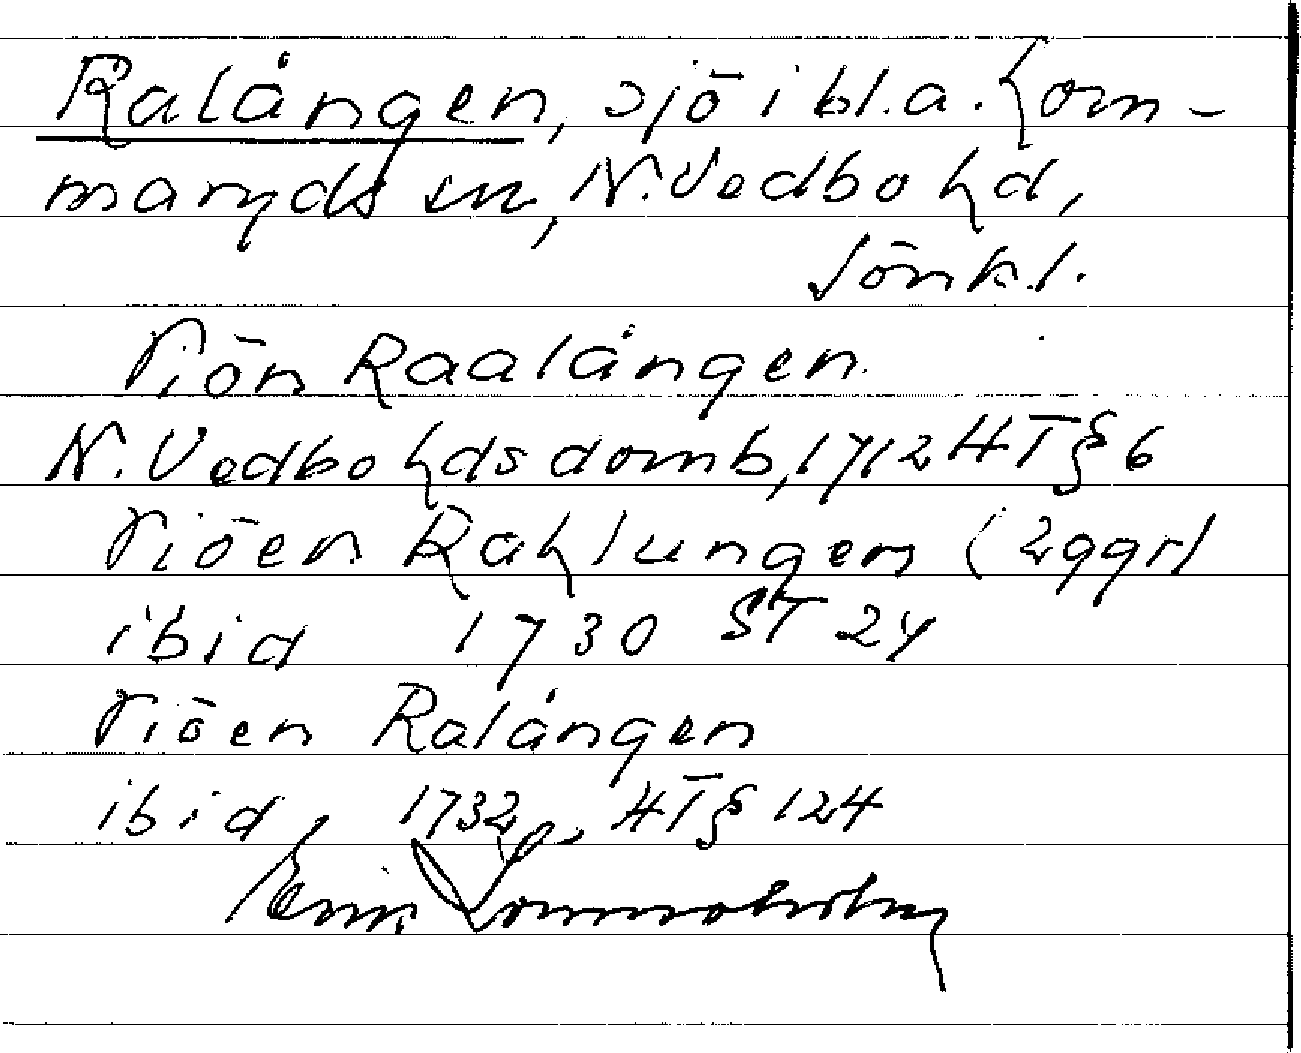 Ralången, sjö i bl.a. Lom-
maryds sn, N. Vedbo hd,
Jönk.l.
Siön Raalången.
N. Vedbo hds domb, 1712 HT § 6
Siöen Rahlungen (2 ggr)
ibid 1730 ST 24
Siöen Ralången
ibid, 1732, HT § 124
Erik